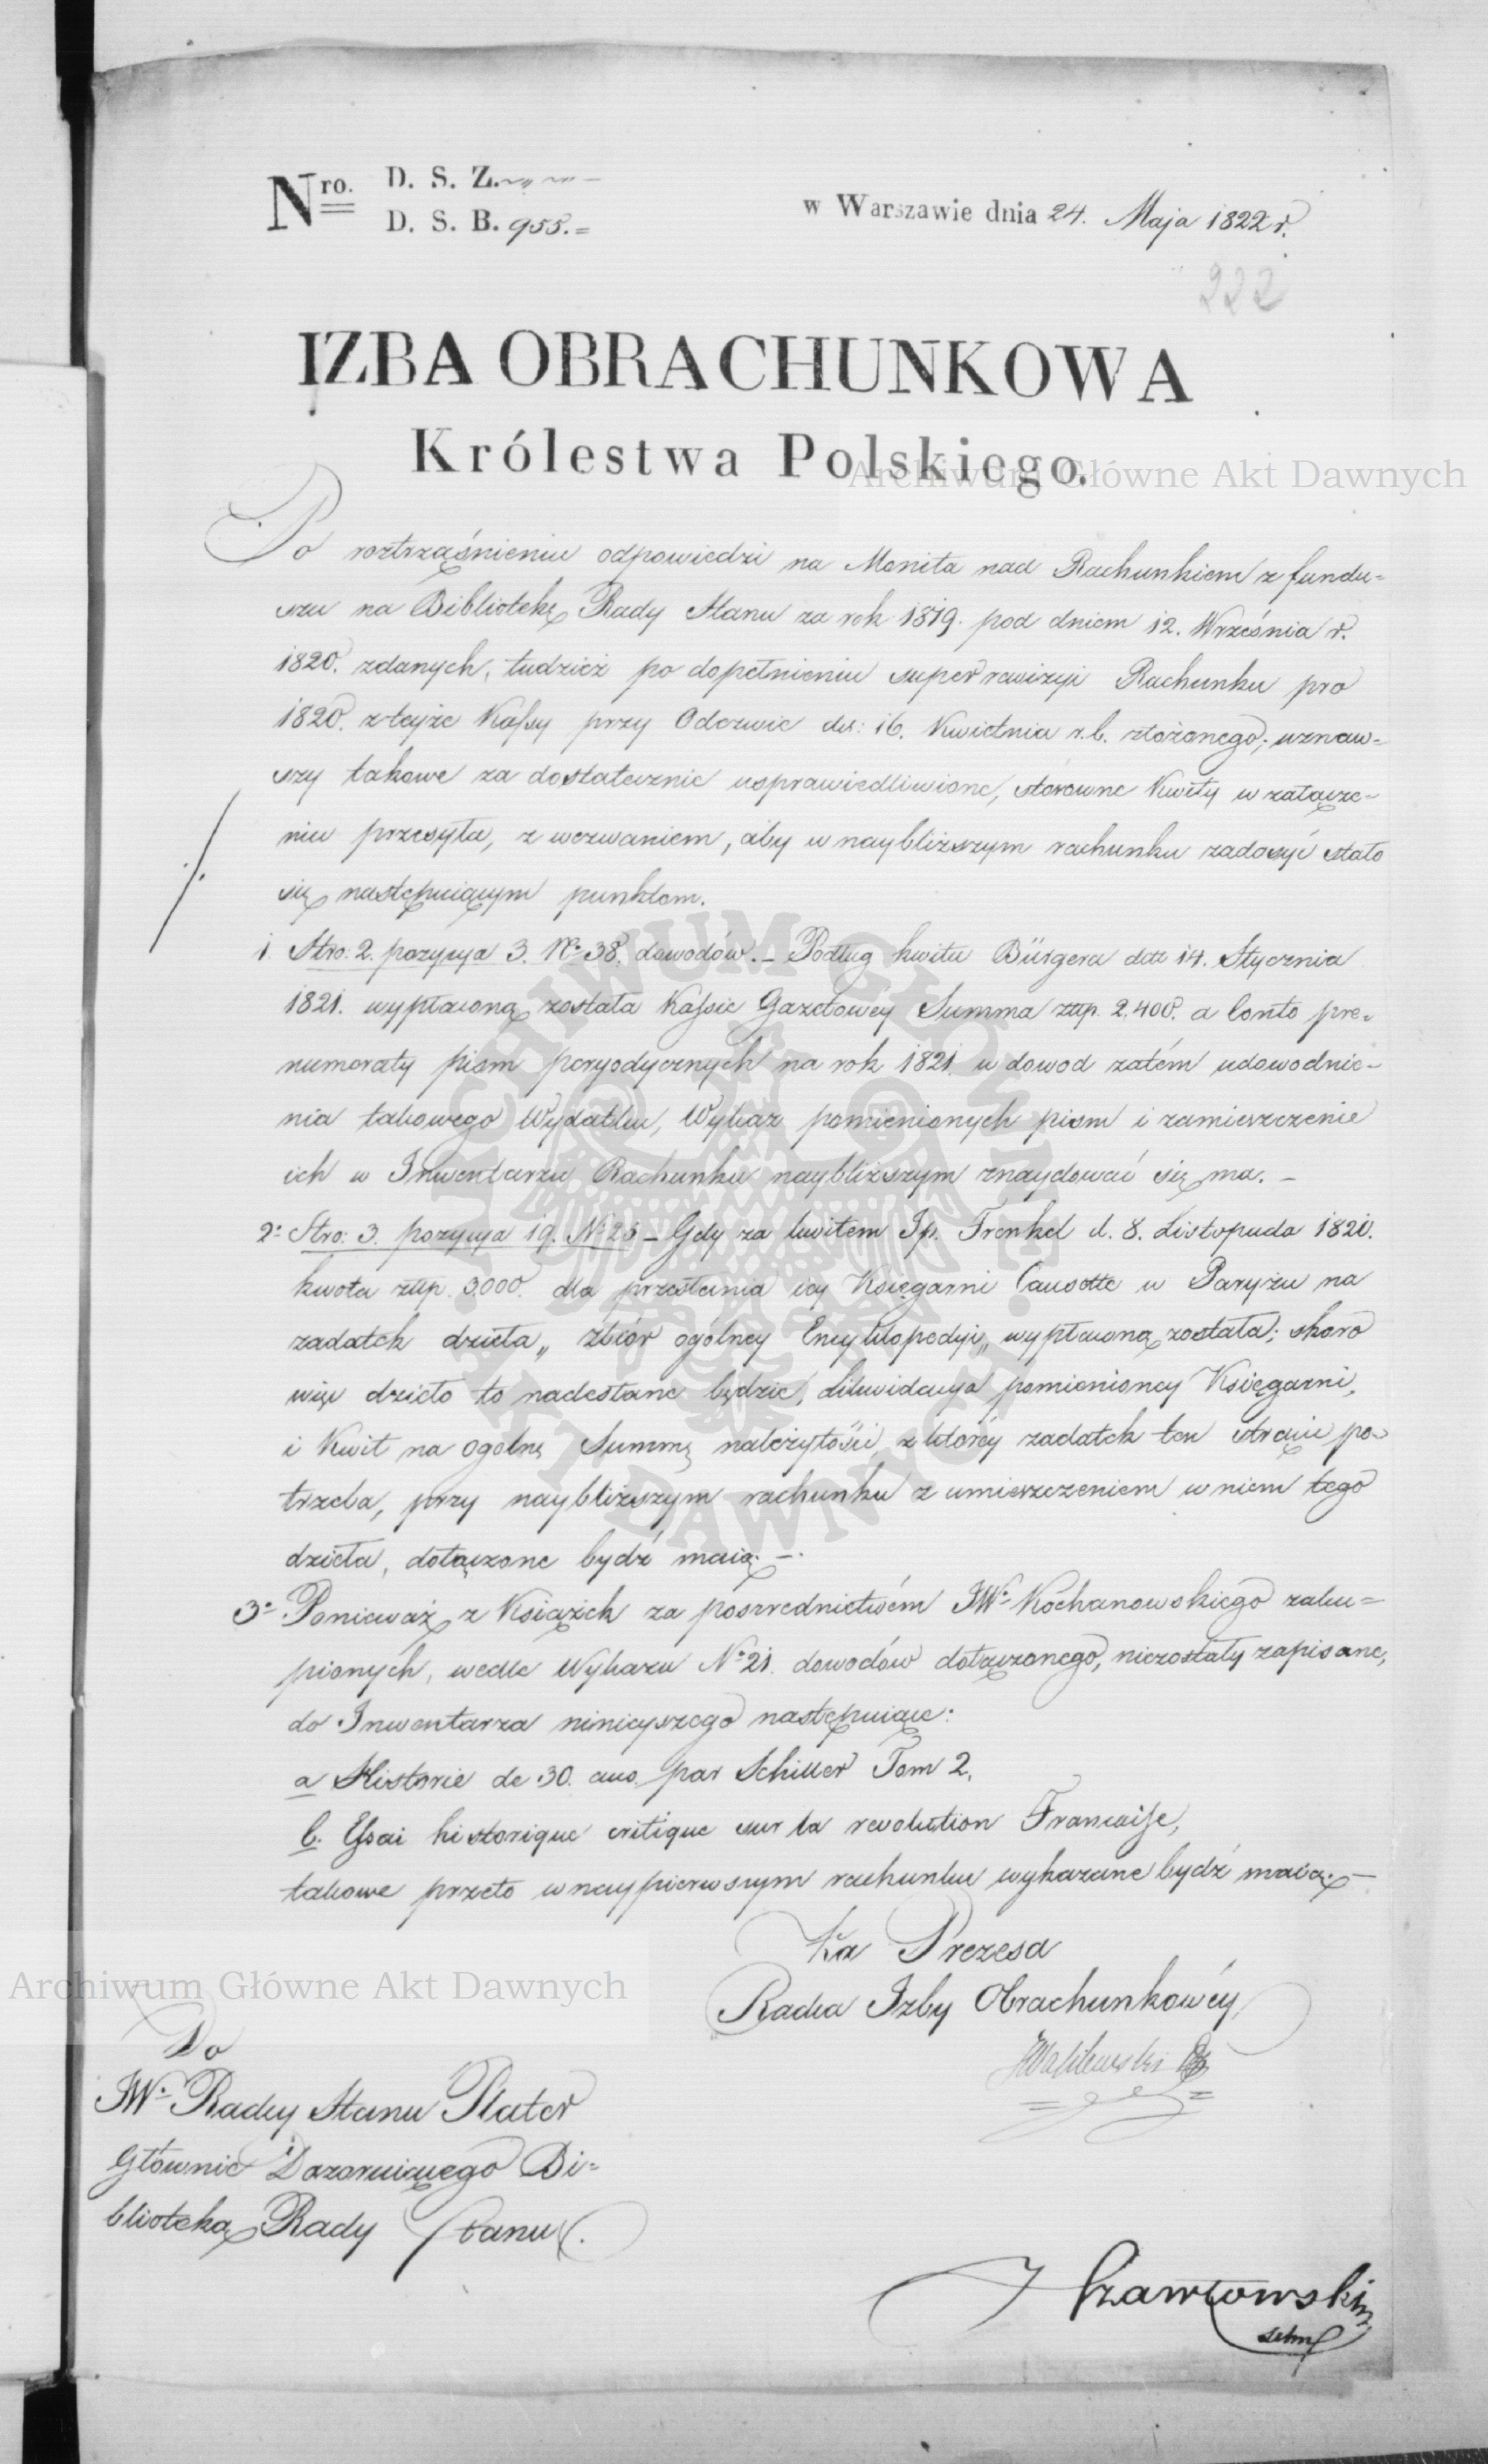 Nro. D. S. Z.
D. S. B. 955.=
w Warszawie dnia 24. Maja 1822 r.
222
IZBA OBRACHUNKOWA
Królestwa Polskiego.
Archiwum Główne Akt Dawnych
Po roztrząśnieniu odpowiedzi na Monita nad Rachunkiem z fundu=
szu na Bibliotekę Rady Stanu za rok 1819. pod dniem 12. Września r.
1820. zdanych, tudzież po dopełnieniu superrewizyi Rachunku pro
1820. z teyże Kassy przy Odezwie dd: 16. Kwietnia r.b. złożonego; uznaw=
szy takowe za dostatecznie usprawiedliwione, stosowne Kwity w załącze=
niu przesyła, z wezwaniem, aby w naybliższym rachunku zadosyć stało
się następuiącym punktom.
1. Stro: 2. pozycya 3. No 38. dowodów. – Podług kwitu Bürgera ddto 14. Stycznia
1821. wypłaconą została Kassie Gazetowey Summa złp. 2.400. a Conto pre=
numeraty pism peryodycznych na rok 1821. w dowod zatém udowodnie=
nia takowego Wydatku, Wykaz pomienionych pism i zamieszczenie
ich w Inwentarzu Rachunku naybliższym znaydować się ma. –
2o Stro: 3. pozycya 19. No 25 – Gdy za kwitem Jp. Frenkel d. 8. Listopada 1820.
kwota złp. 3.000. dla przesłania iey Księgarni w Paryżu na
zadatek dzieła „ zbiór ogolney Encyklopedyi „ wypłaconą została; skoro
więc dzieło to nadesłane będzie, Likwidacya pomienioney Księgarni,
i Kwit na ogolną Summę należytości, z którey zadatek ten strącić po=
trzeba, przy naybliższym rachunku z umieszczeniem w niem tego
dzieła, dołączone bydź maią. –
3o Ponieważ z Książek za posrednictwém JWo Kochanowskiego zaku=
pionych, wedle Wykazu No 21. dowodów dołączonego, niezostały zapisane,
do Inwentarza ninieyszego następuiące:
a Historie de 30. ans par Schiller Tom 2.
b. Essai historique critique sur la revolution Francaise,
takowe przeto w naypierwszym rachunku wykazane bydź maią. –
Za Prezesa
Radca Izby Obrachunkowéy
Archiwum Główne Akt Dawnych
Do
JWo Radcy Stanu Plater
Głównie Dozoruiącego Bi=
bliotekę Rady Stanu.
ARCHIWUM GŁÓWNE
AKT DAWNYCH